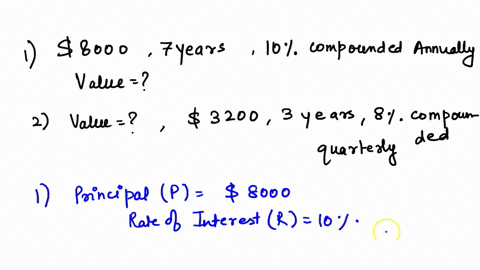 1) $ 8000 , 7 years , 10%. compounded Annually
Value = ?
2) Value = ? , $ 3200 , 3 years , 8%. compoun
ded
quarterly
1) Principal (P) = $ 8000
Rate of Interest (R) = 10%.